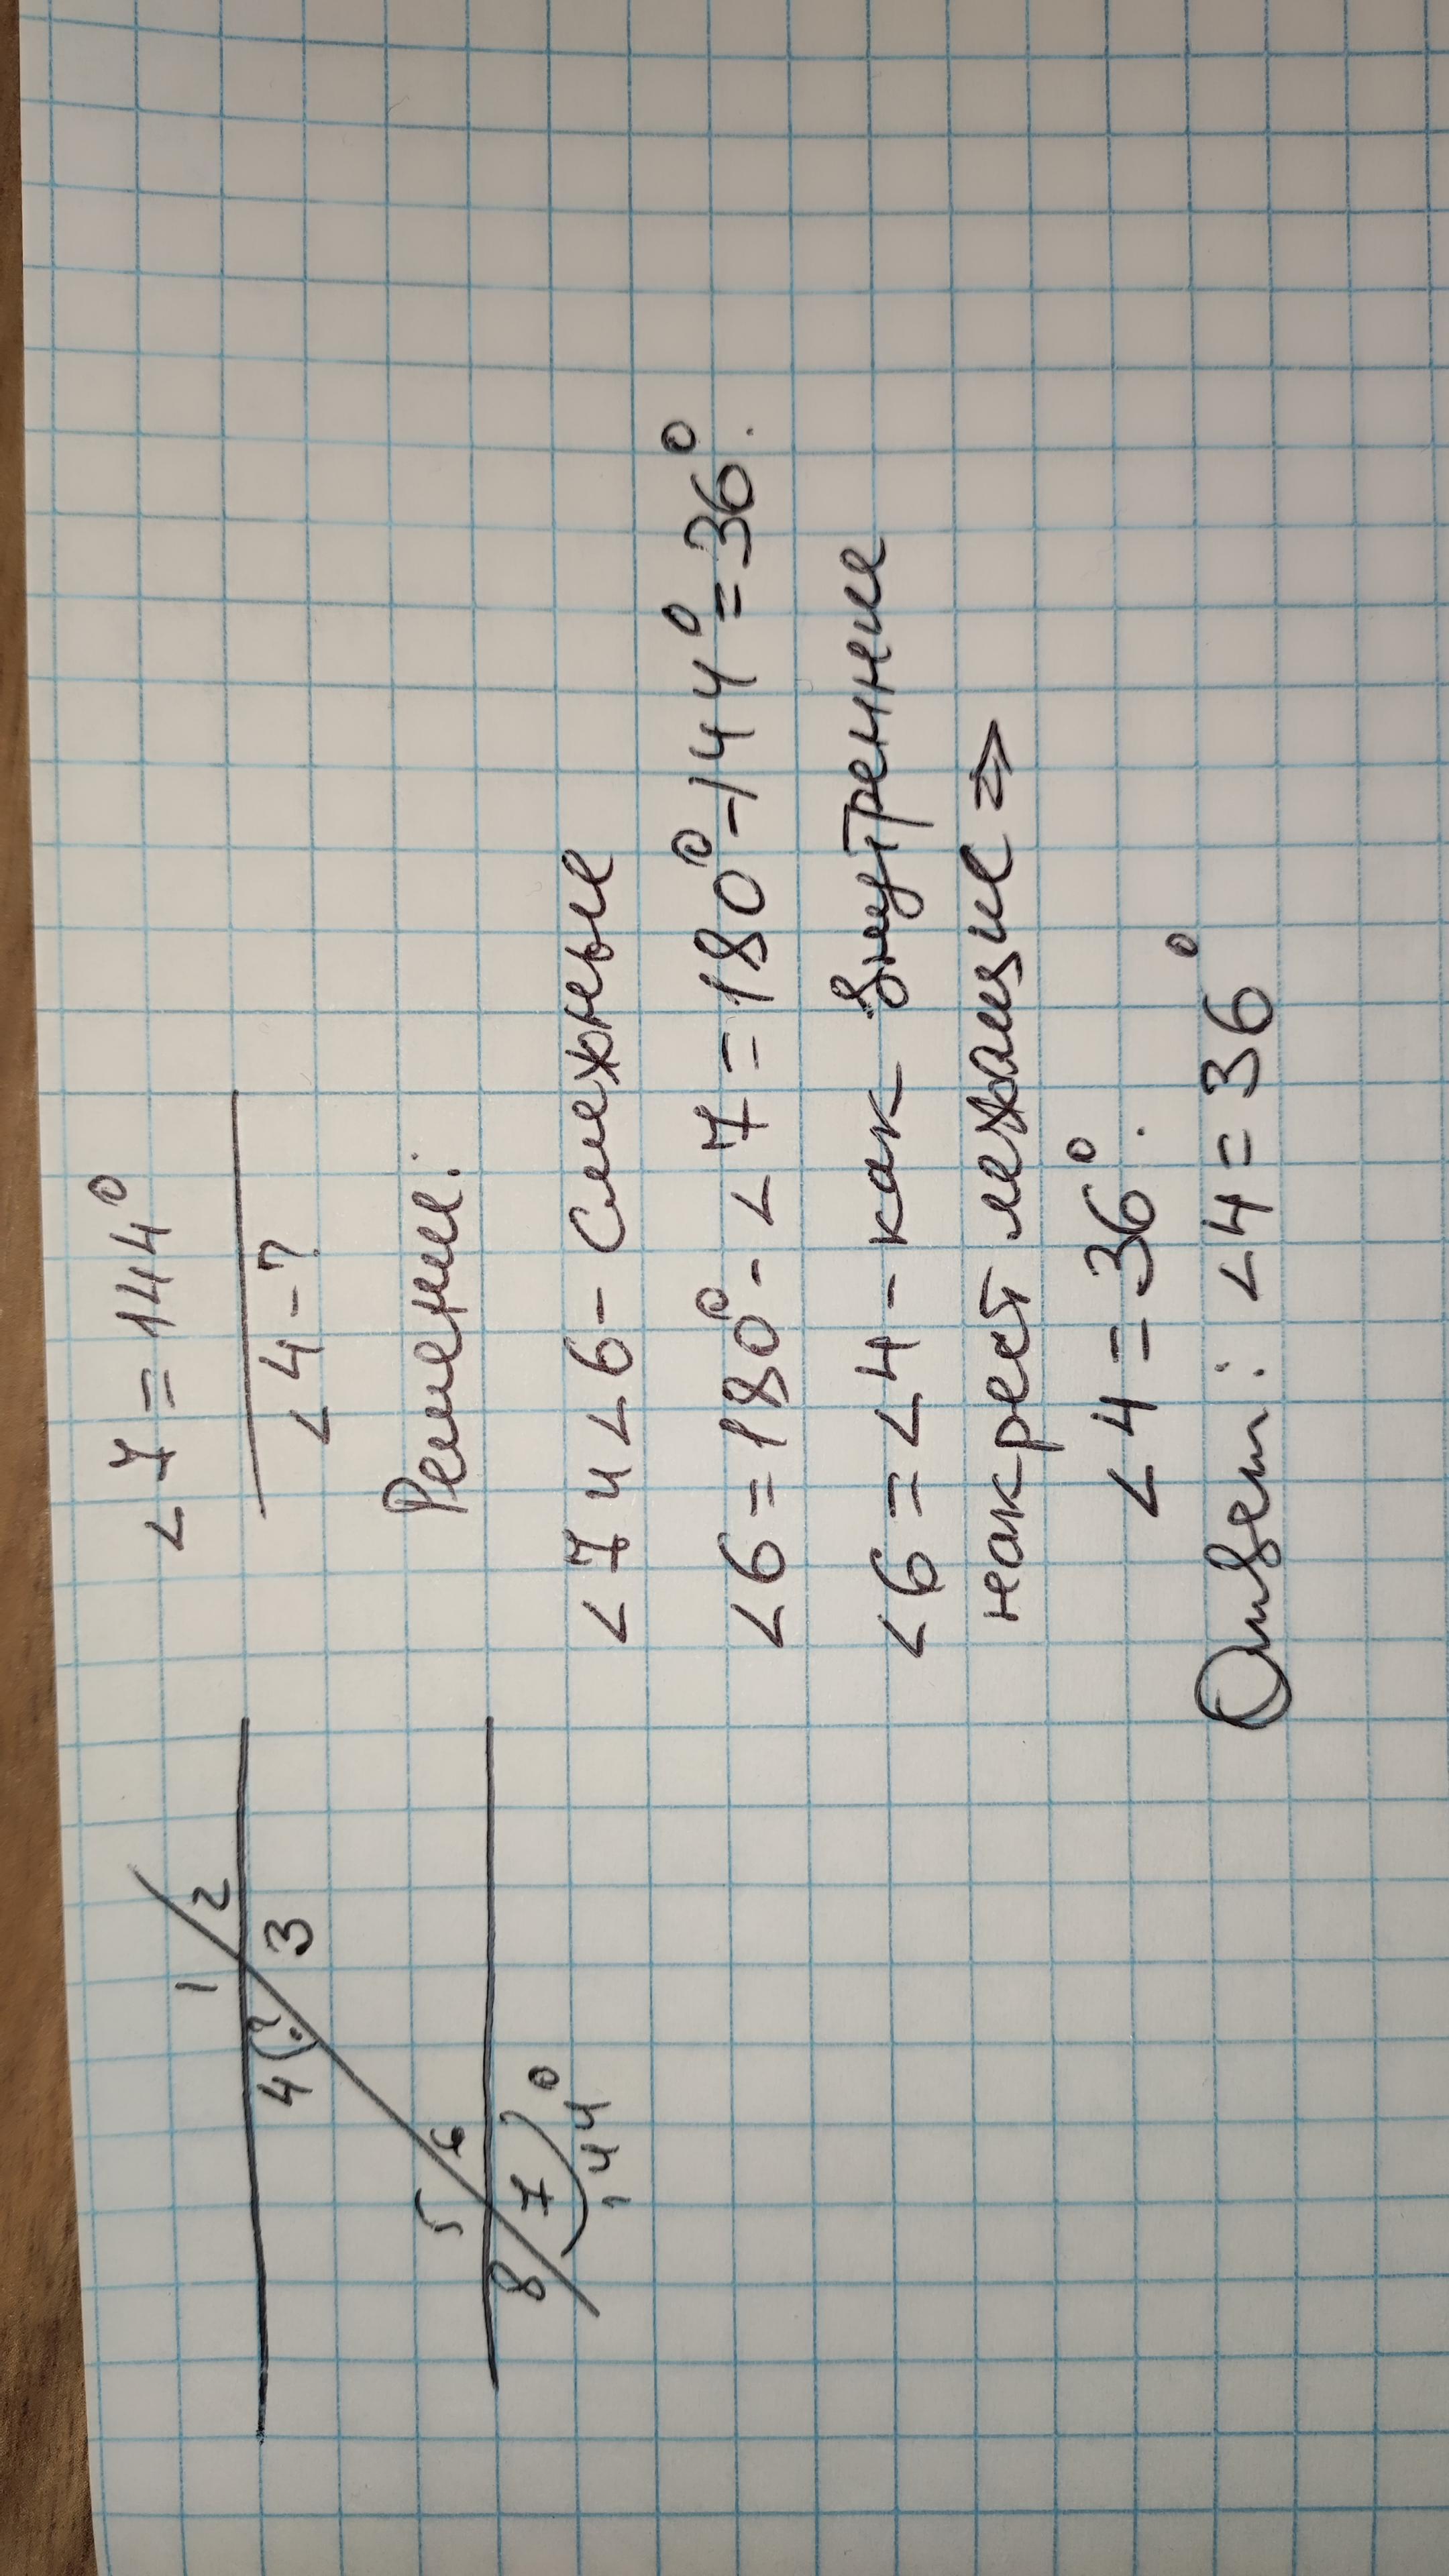 1 2
4 ? 3
5 6
8 7
144°
<7 = 144°
<4 - ?
Решение:
<7 и <6 - Смежные
<6 = 180° - <7 = 180° - 144° = 36°.
<6 = <4 - как внутренние
накрест лежащие ⇒
<4 = 36°.
Ответ: <4 = 36°